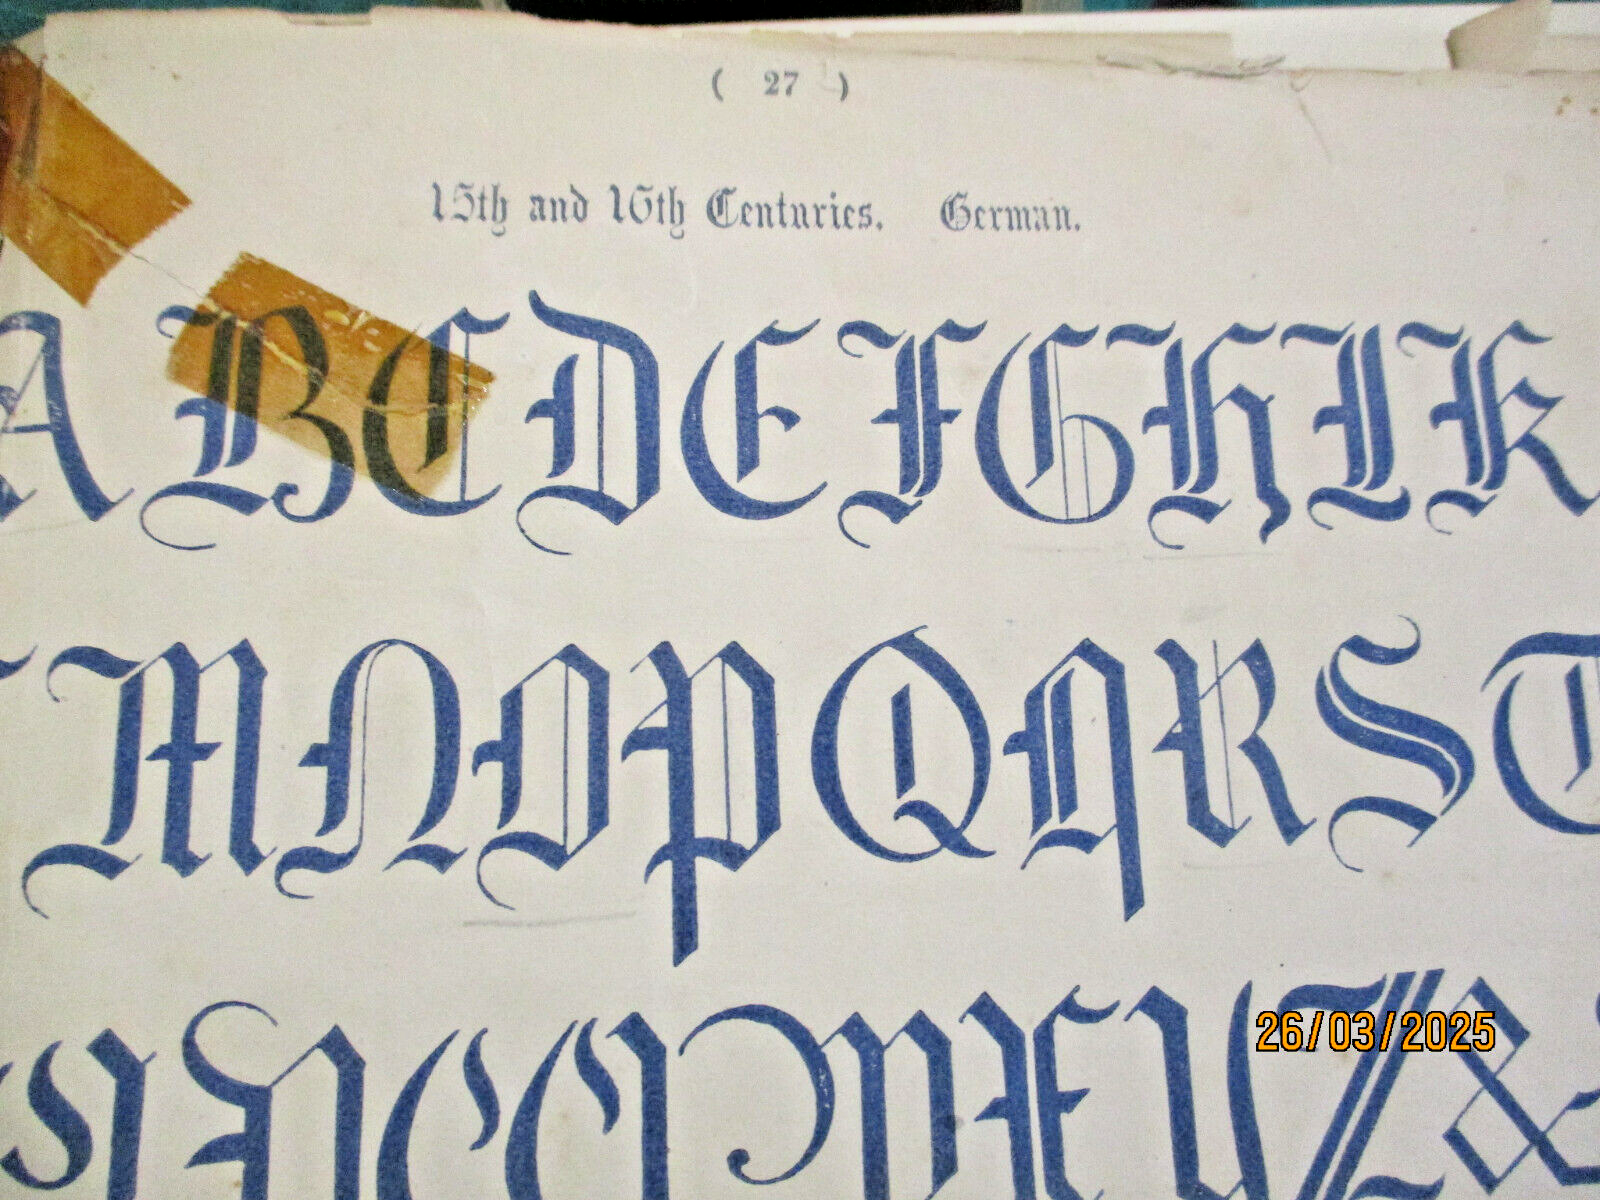 ( 27 )
15th and 16th Centuries. German.
A B C D E F G H I K
M N O P Q Q R S T
X Y Z &
26/03/2025